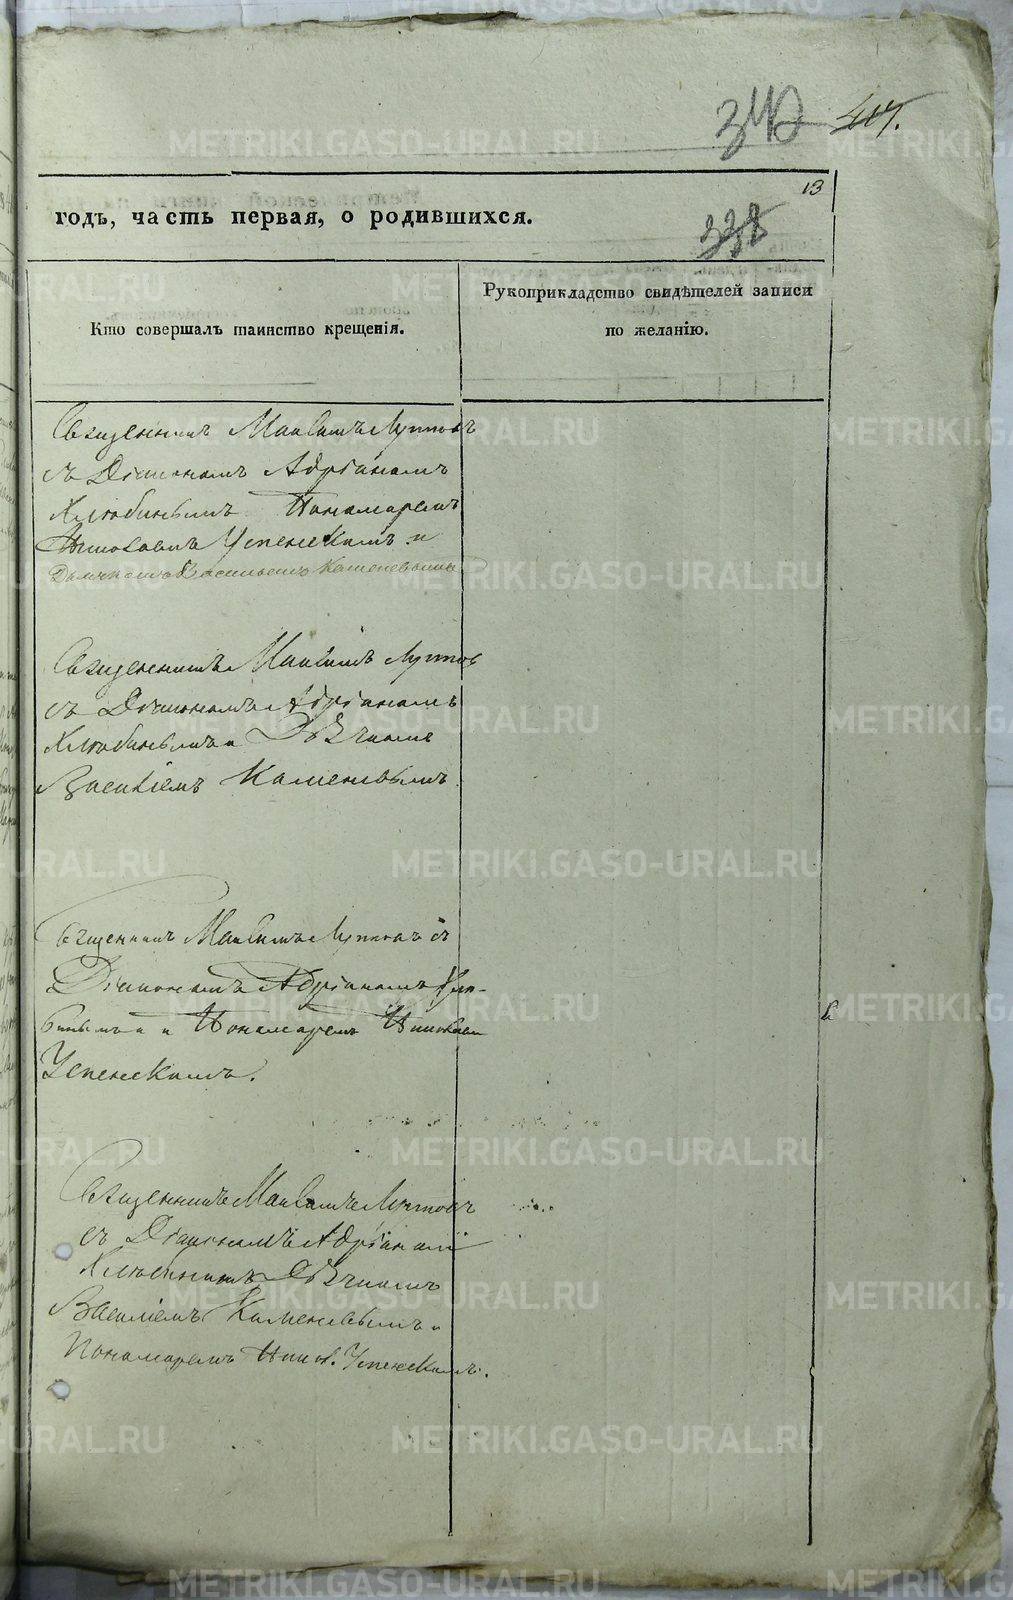 342 417.
13
годъ, часть первая, о родившихся.
338
Кто совершалъ таинство крещенія.
Рукоприкладство свидѣтелей записи
по желанію.
Священникъ Максимъ Луппов
съ Діакономъ Адріаномъ
Хлюбинымъ Пономаремъ
Николаемъ Успенскимъ и
Дьячкомъ Василіемъ Каменевымъ
Священникъ Максимъ Луппов
съ Діакономъ Адріаномъ
Хлюбинымъ и Дьячкомъ
Василіемъ Каменевымъ
Священникъ Максимъ Лупповъ съ
Діакономъ Адріаномъ Хлю-
бинымъ и Пономаремъ Николаем
Успенскимъ.
Священникъ Максимъ Лупповъ
съ Діакономъ Адріаном
Хлюбинымъ Дьячкомъ
Василіемъ Каменевымъ и
Пономаремъ Никол. Успенскимъ.
METRIKI.GASO-URAL.RU